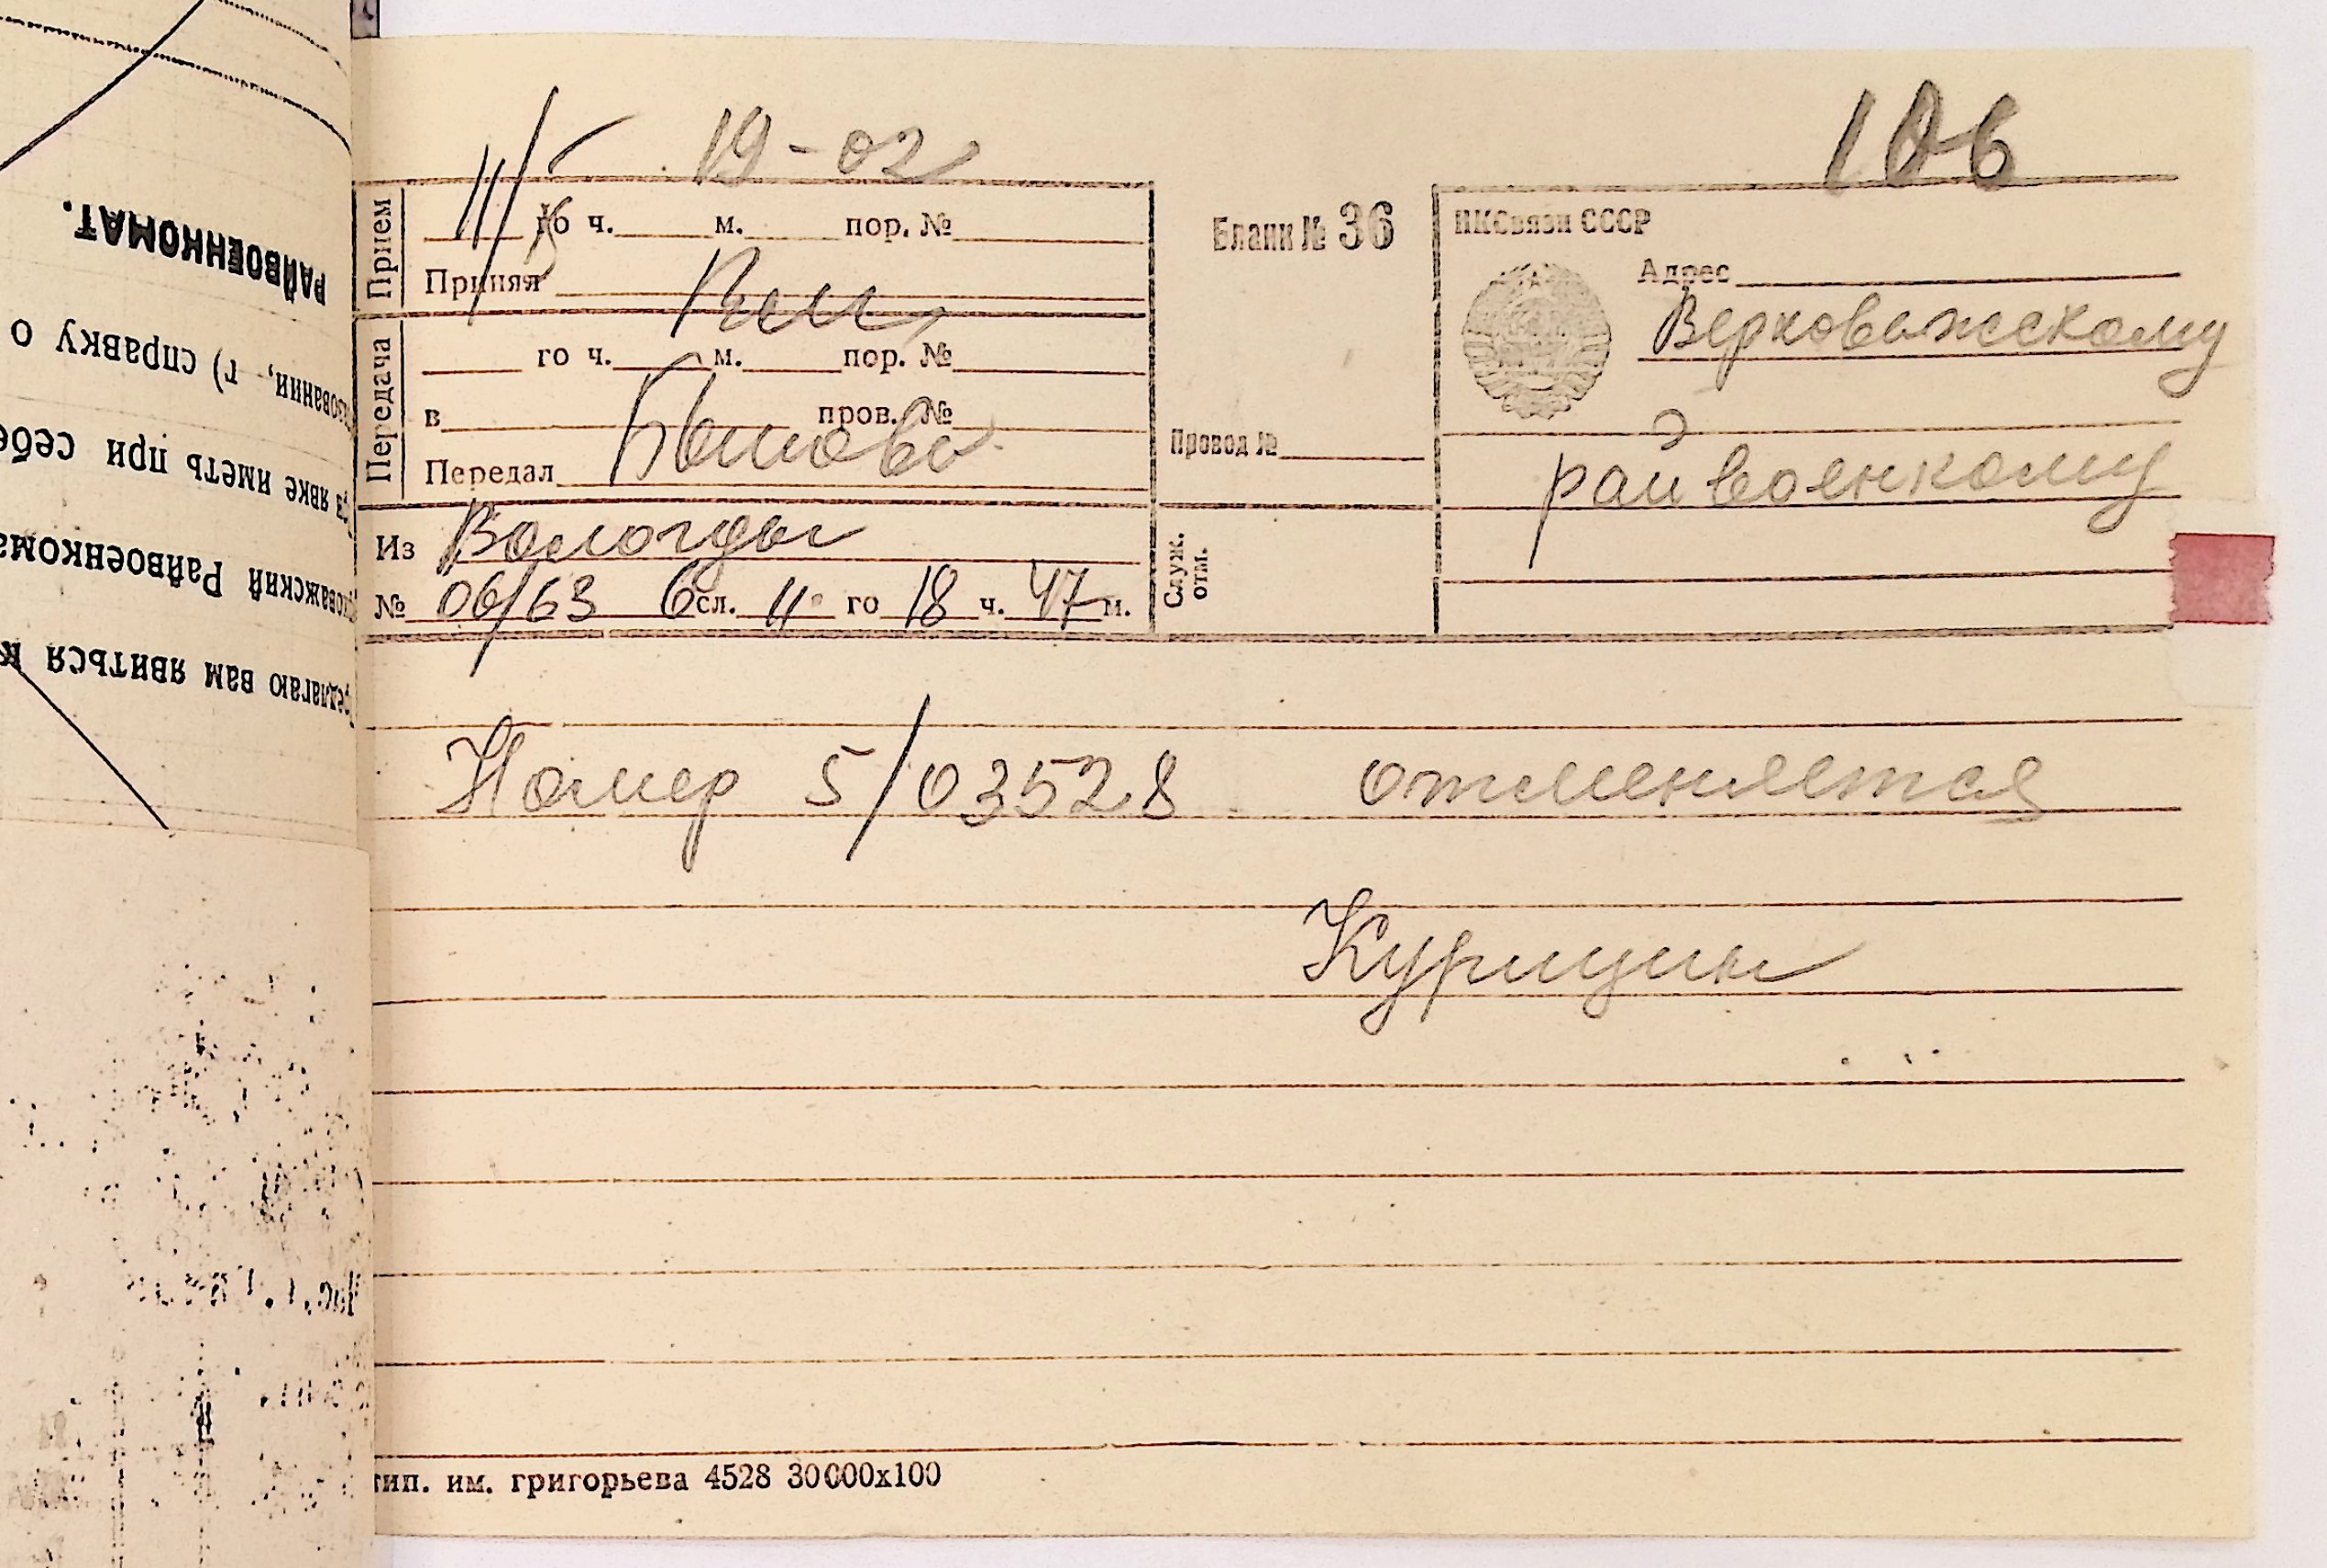 106
19-02
Прием
го ч. м. пор. №
Принял
Передача
го ч. м. пор. №
в пров. №
Передал
Из Вологды
№ 06/63 6 сл. 11 го 18 ч. 47 м.
Бланк № 36
Провод №
Служ. отм.
НКСвязи СССР
Адрес
Верховажскому
райвоенкому
Номер 5/03528 отменяется
Курицын
тип. им. григорьева 4528 30000х100
РАЙВОЕНКОМАТ.
г) справку о
явке иметь при себе
Райвоенкома
вам явиться в